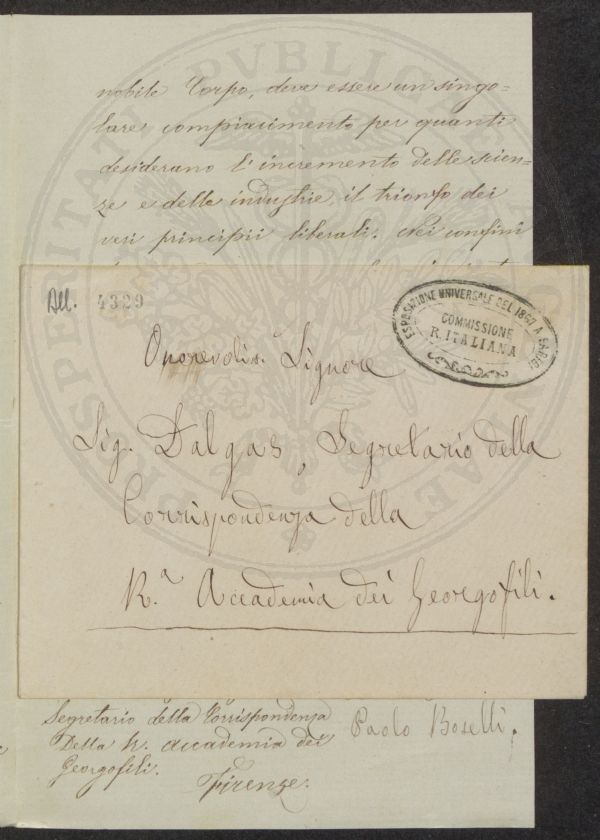 nobile Corpo, deve essere un singo=
lare compiacimento per quanti
desiderano l'incremento delle scien=
ze e delle industrie, il trionfo dei
veri principii liberali. Nei confini
All. 4329
ESPOSIZIONE UNIVERSALE DEL 1867 A PARIGI
COMMISSIONE
R. ITALIANA
Onorevolis. Signore
Sig. Dalgas, Segretario della
Corrispondenza della
R.ª Accademia dei Georgofili.
Segretario della Corrispondenza
Della R. Accademia dei
Georgofili.
Firenze.
Paolo Boselli.
PROSPERITATI PVBLICAE